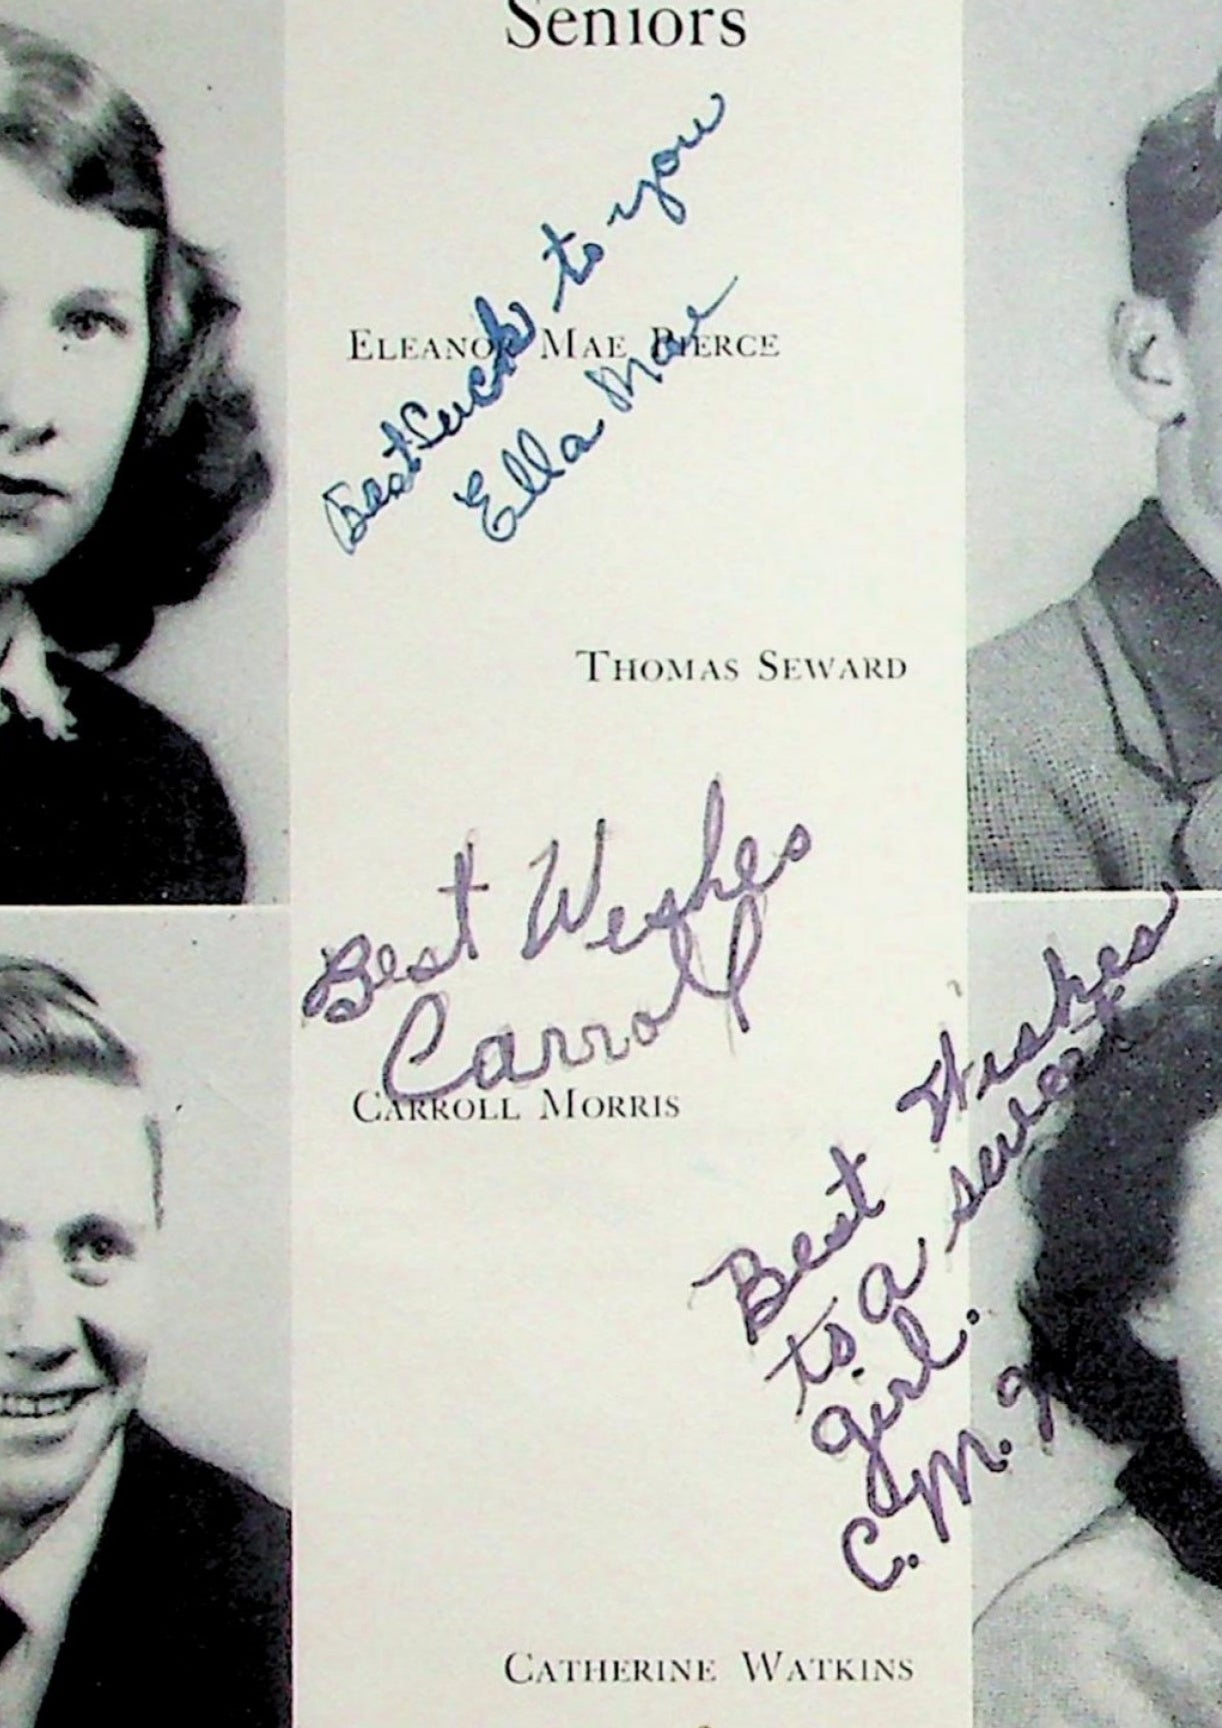 Seniors
Best Luck to you
Ella Mae
ELEANOR MAE PIERCE
THOMAS SEWARD
Best Wishes
Carroll
CARROLL MORRIS
Best Wishes
to a sweet
girl.
C. M. W
CATHERINE WATKINS